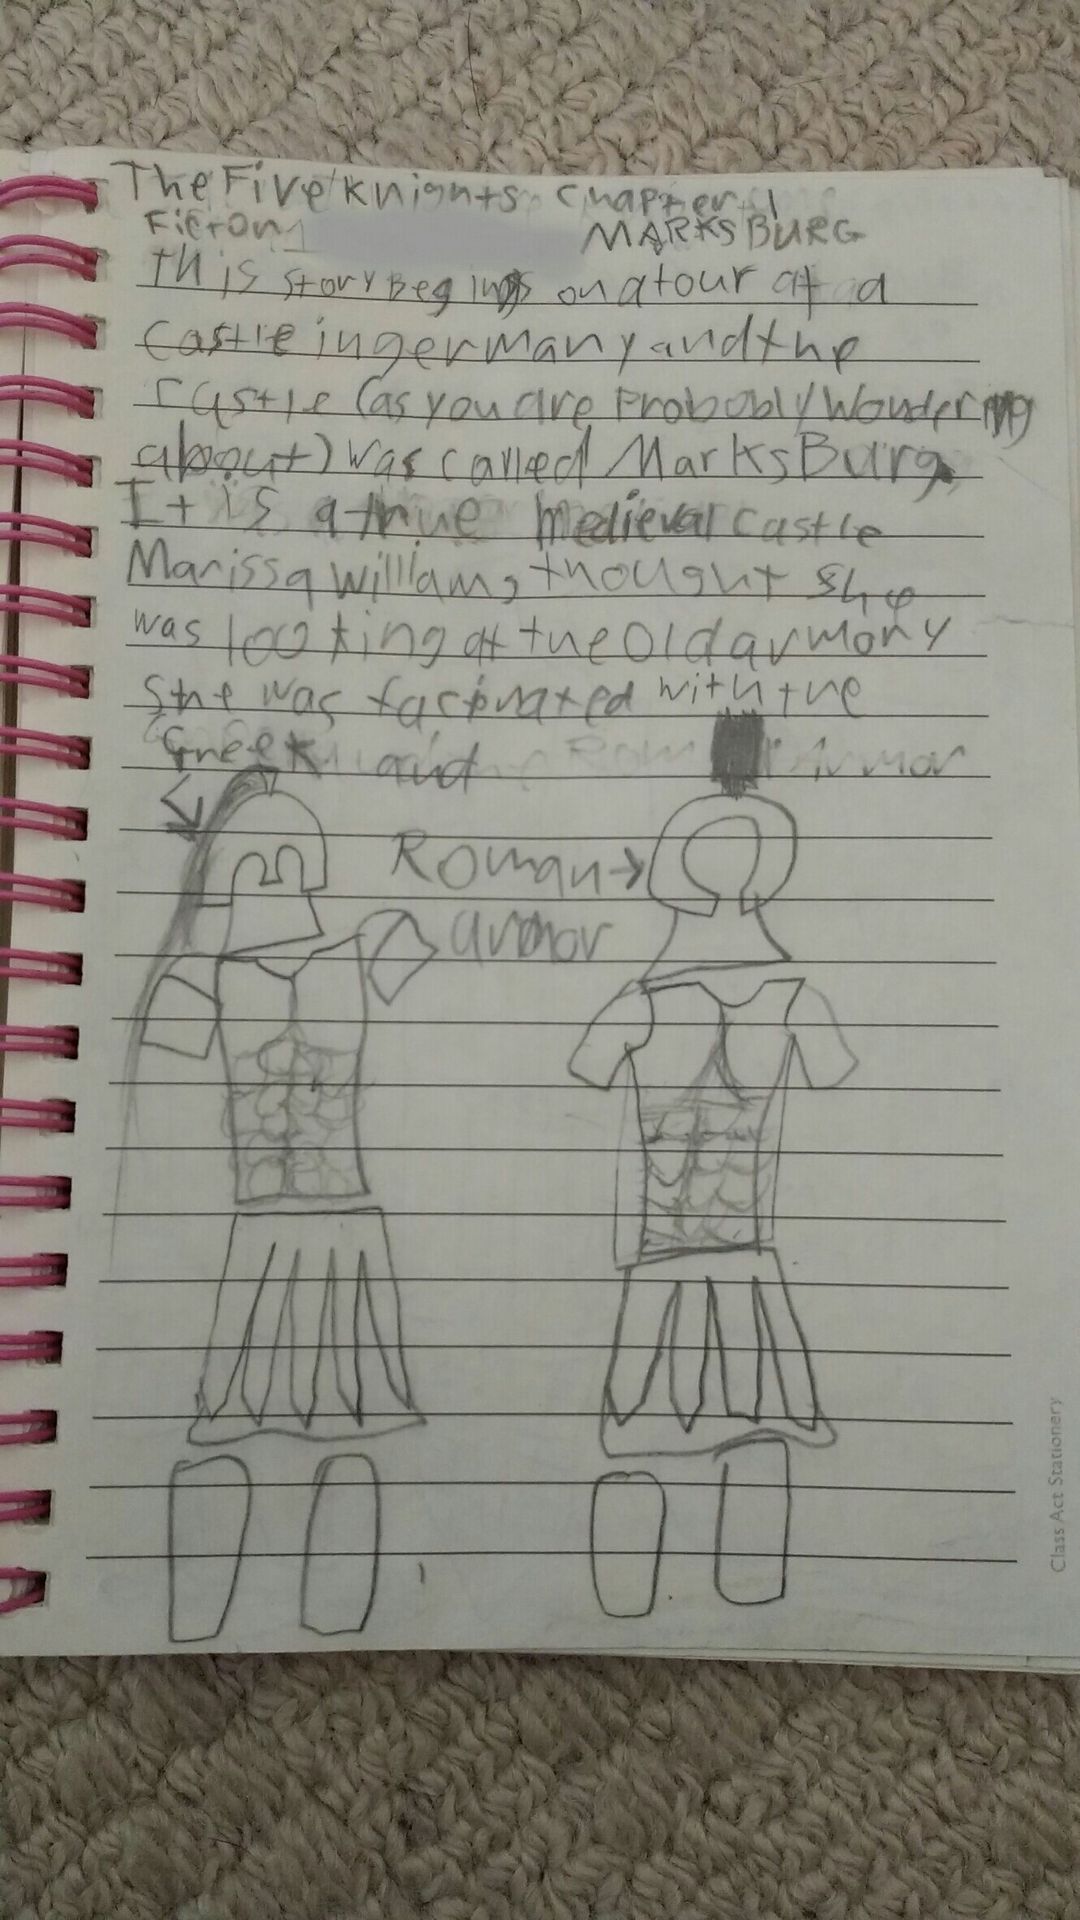 The Five Knights Chapter 1
Fiction MARKSBURG
this story Begings on a tour at a
castle in germany and the
castle (as you are Probobly Wondering
about) was called MarksBurg.
It is a true medieval castle
Marissa Williams thought she
was looking at the old armory
She was facinated with the
Greek and Roman Armor
Roman→
armor
Class Act Stationery